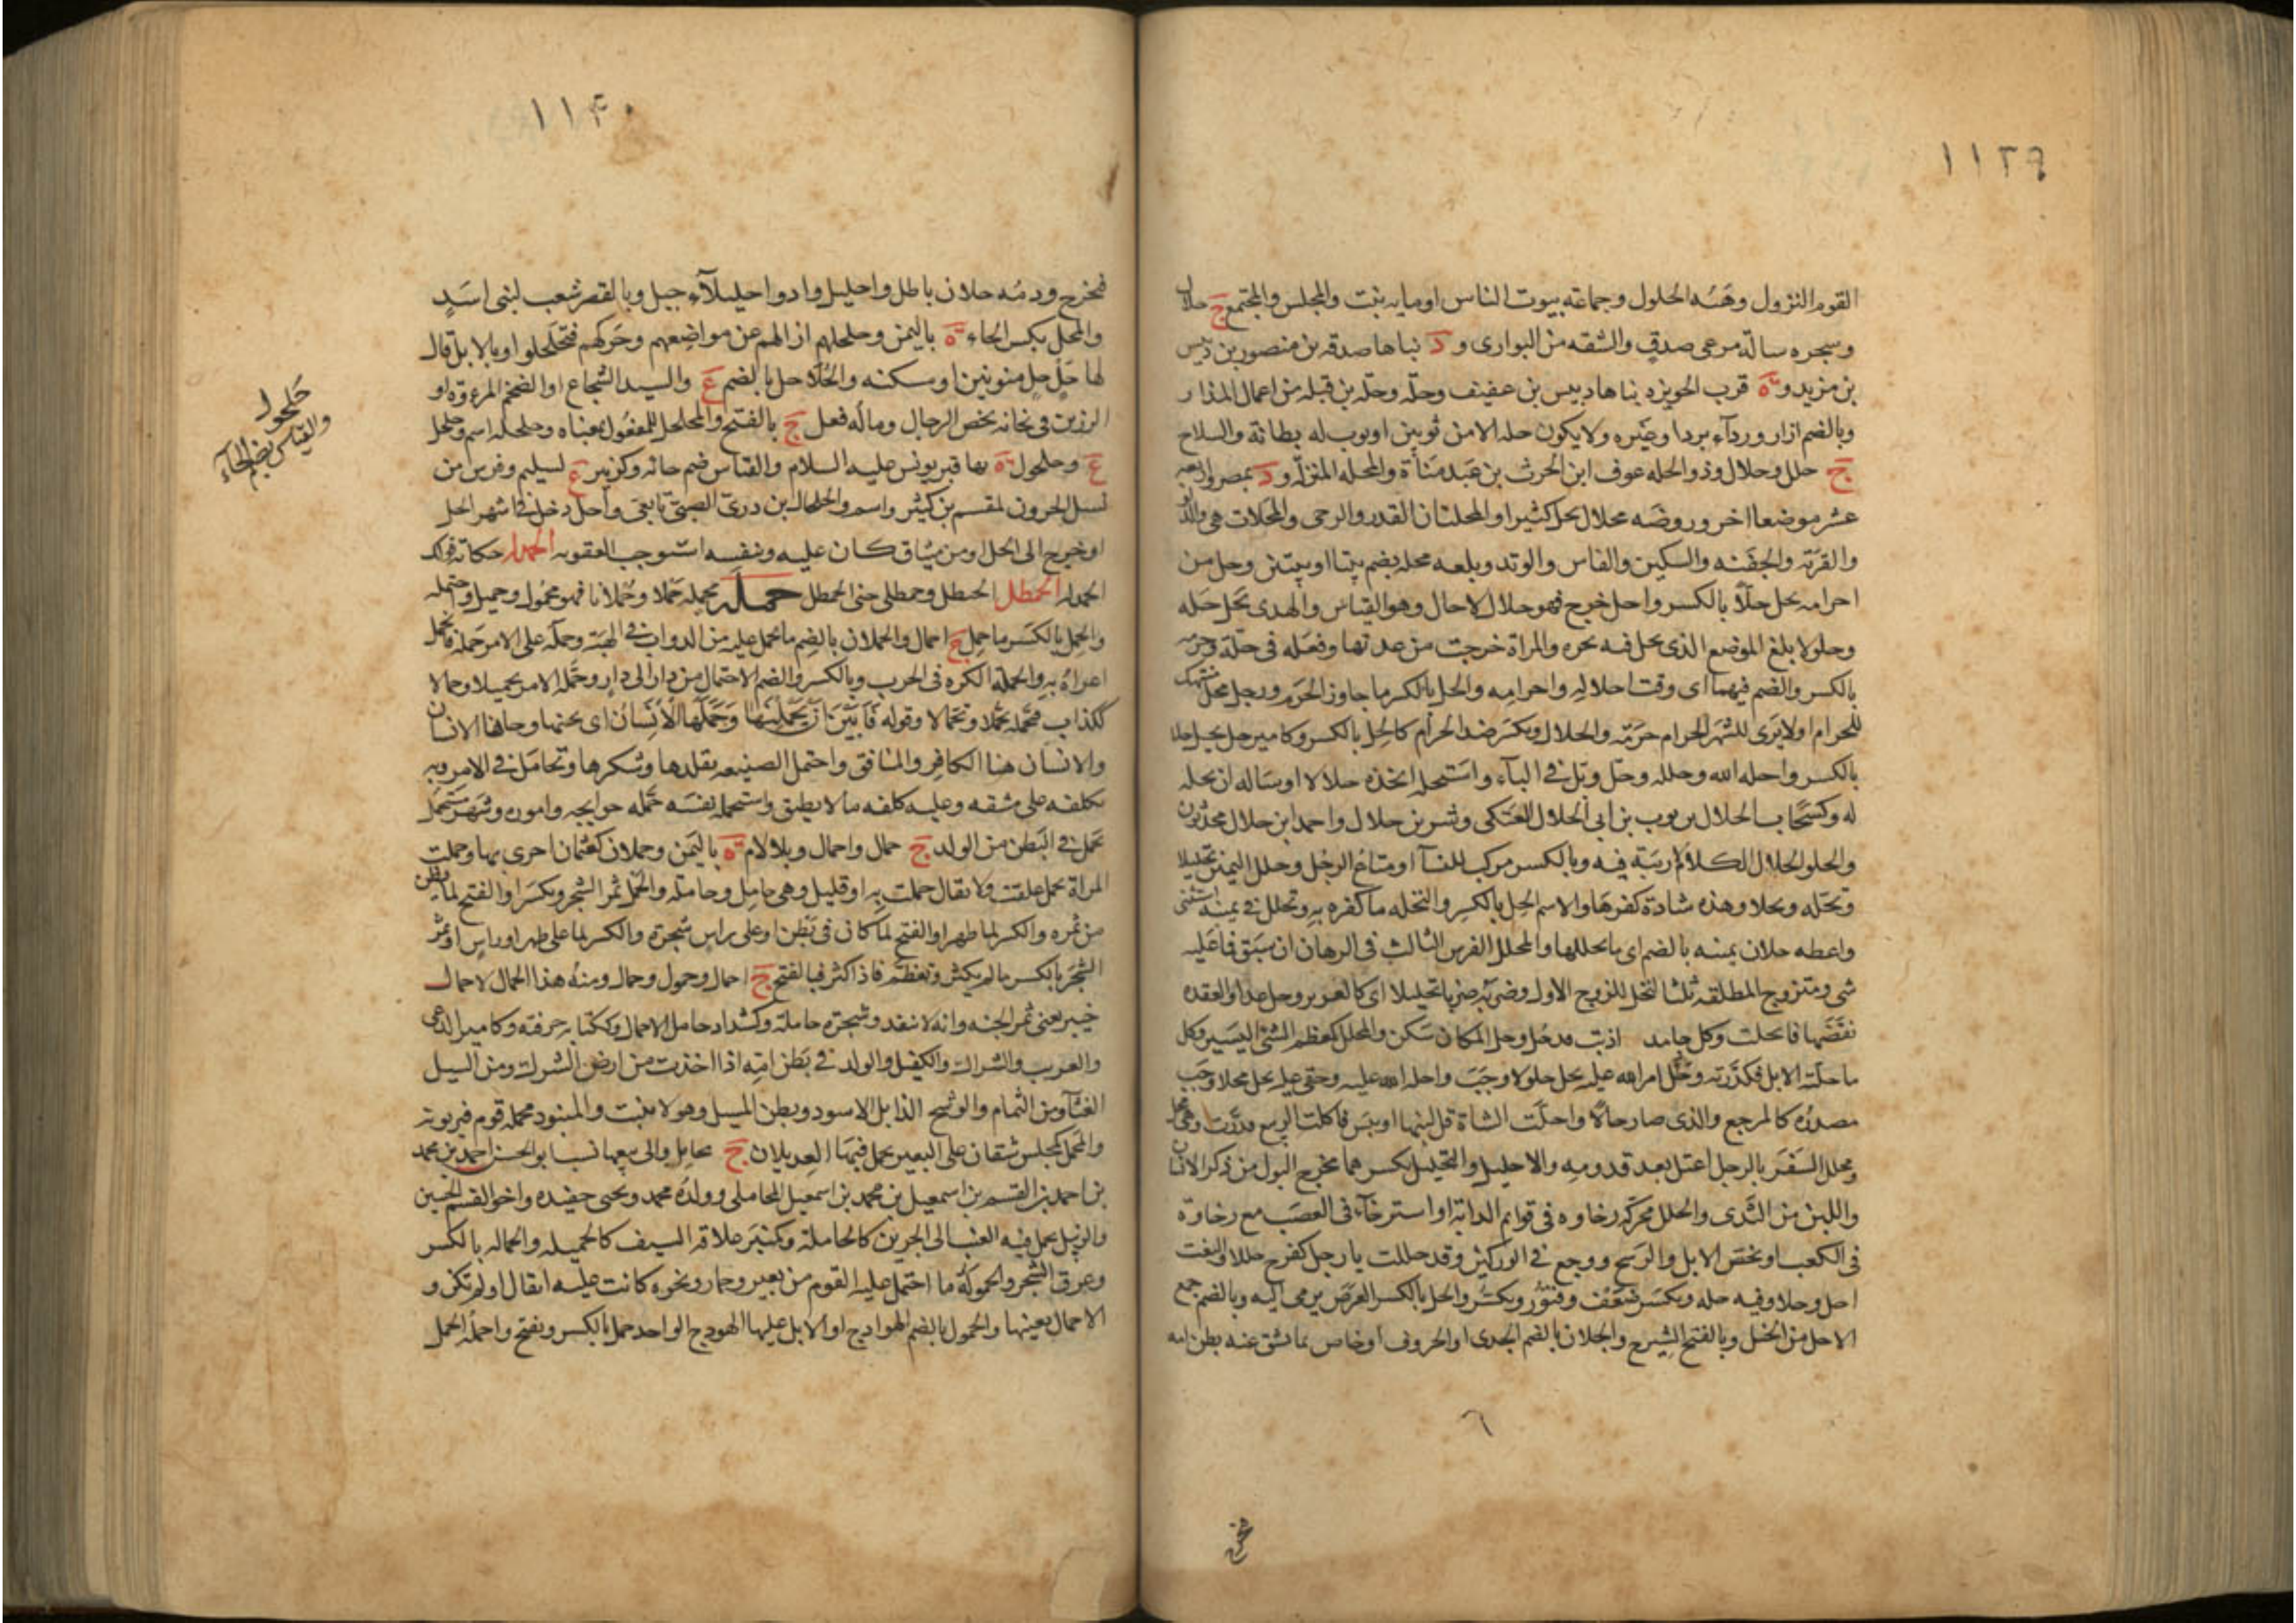 ١١٣٩
القوم النزول وهَيْـه الحلول وجماعة بيوت الناس اوماية بيت والمجلس والمجتمع ج حلال
وشجره شاكّة مرعى صدقٍ والشقه من البوارى و د بناها صدقه بن منصور بن دبيس
بن مزيد و ة قرب الحويزه بناها دبيس بن عفيف وحلّه وحلّه بن قيله من اعمال المذار
وبالضم ازار وردآء برد اوغيره ولا يكون حله الا من ثوبين اوثوب له بطانة والسلاح
ج حلل وحلال وذو الحله عوف ابن الحرث بن عبد مناة والمحله المنزل و د بمصر واربعه
عشر موضعا اخر وروضه محلال تحل كثيرا والمحلتان القدر والرحى والمحلات هي والدلو
والقربة والجفنه والسكين والفاس والوتد وبلعه محله بضم بيتا او بيتين وحل من
احرامه يحل حلّاً بالكسر واحل خرج فهو حلال لا حال وهو القياس والهدى يحل حله
وحلولا بلغ الموضع الذى يحل فيه نحره والمراة خرجت من عدتها وفعله في حلّه وحرمه
بالكسر والضم فيهما اى وقت احلاله واحرامه والحل بالكسر ما جاوز الحرم ورجل محل منتهك
للحرام او لا يرى للشهر الحرام حرمة والحلال ويكسر ضد الحرام كالحل بالكسر وكامير حل يحل حلا
بالكسر واحله الله وحلله وحل وبل في البآء واستحله اتخذه حلالا او ساله ان يحله
له وكسحاب الحلال بن ثوب بن ابى الحلال العتكى وبشر بن حلال واحمد ابن حلال محدثون
والحلو الحلال الكلام لا ريبة فيه وبالكسر مركب للنسآ او متاع الرجل وحلل اليمين تحليلا
وتحلّه وتحلا وهذه شاذة كفرها والاسم الحل بالكسر والتحله ما كفره به وتحلل في يمينه استثنى
واعطه حلان يمينه بالضم اى ما يحللها والمحلل الفرس الثالث فى الرهان ان سبق فما عليه
شى ومتزوج المطلقه ثلثا لتحل للزوج الاول وضربه ضربا تحليلا اى كالتعزير وحل عدا والعقده
نقضها فانحلت وكل جامد اذيب فقد حل وحل المكان سكن والمحلل كمعظم الشئ اليسير وكل
ما حلّته الابل فكدّرته وحلّ امر الله عليه يحل حلولا وجب واحله الله عليه وحقى عليه يحل محلا وجب
مصدره كالمرجع والذى صار حالا واحلّت الشاة قل لبنها او يبس فاكلت الربيع فدرّت وهى محل
وتحلل السفر بالرجل اعتل بعد قدومه والاحليل والتحليل بكسرهما مخرج البول من ذكر الانسان
واللبن من الثدى والحلل محركة رخاوه فى قوايم الدابة او استرخآء فى العصب مع رخاوة
فى الكعب او يخص الابل والرسح ووجع في الوركين وقد حللت يا رجل كفرح حللا والنعت
احل وحلا وفيه حله ويكسر ضعف وفتور وتكسّر والحل بالكسر الغرض يرمى اليه وبالضم جمع
الاحل من الخيل وبالفتح الشيرج والحلان بالضم الجدى او الخروف او خاص بما يشق عنه بطن امه
فيخرج
١١٤٠
فيخرج ودمه حلان باطل واحليل واد واحليلآء جبل وبالقصر شعب لبنى اسدٍ
والمحل بكسر الحاء ة باليمن وحلحلهم ازالهم عن مواضعهم وحركهم فتحلحلوا وبالابل قال
لها حَلٍ حَلٍ منونين او مسكنه والحُلاحل بالضم ع والسيد الشجاع او الضخم المروّة او
الرزين في ثخانة يخص الرجال وماله فعل ج بالفتح والمحلحل للمفعول بمعناه وحلحله اسم وحلحل
ع وحلحول ة بها قبر يونس عليه السلام والقياس ضم حائه وكزبير ع لسليم وفرس من
نسل الحرون لمقسم بن كثير واسم والحلحال بن درى الضبى تابعى وأحل دخل فى اشهر الحل
او خرج الى الحل او من ميثاق كان عليه وبنفسه استوجب العقوبه الحمدله حكاية قولك
الحمد لله الحمطل الحنظل وحمطلى جنى الحمطل حمله يحمله حملا وحملانا فهو محمول وحميل واحتمله
والحمل بالكسر ما حمل ج احمال والحملان بالضم ما يحمل عليه من الدواب في الهبة وحمله على الامر حمله فانحمل
اغراه به والحملة الكره فى الحرب وبالكسر والضم الاحتمال من دار الى دار وحمّله الامر تحميلا وحمالا
ككذاب فتحمله تحملا وتحمالا وقوله فَأَبَيْنَ أَنْ يَحْمِلْنَهَا وَحَمَلَهَا الْأِنْسَانُ اى يخنها وخانها الانسان
والانسان هنا الكافر والمنافق واحتمل الصنيعه تقلدها وشكرها وتحامل فى الامر وبه
تكلفه على مشقه وعليه كلفه ما لا يطيق واستحمله نفسه حمّله حوايجه واموره وشهر مستحمل
يحمل فى البطن من الولد ج حمال واحمال وبلا لام ة باليمن وحملان كعثمان اخرى بها وحملت
المراة تحمل علقت ولا يقال حملت به او قليل وهى حامل وحاملة والحمل ثمر الشجر ويكسر او الفتح لما بطن
من ثمره والكسر لما ظهر او الفتح لما كان فى بطن او على راس شجرة والكسر لما على ظهر او راس او ثمر
الشجر بالكسر ما لم يكثر وتعظم فاذا كثر فبالفتح ج احمال وحمول وحمال ومنه هذا الحمال لا حمال
خيبر يعنى ثمر الجنه وانه لا ينفد وشجرة حاملة وكشداد حامل الاحمال وككتابه حرفته وكامير الدعى
والغريب والشراك والكفيل والولد فى بطن امه اذا اخذت من ارض الشرك ومن السيل
الغثآ ومن الثمام والوشيج الذابل الاسود وبطن المسيل وهو لا ينبت والمنبوذ يحمله قوم فيربونه
والمحمل كمجلس شقان على البعير يحمل فيهما العديلان ج محامل والى بيعها نسب ابو الحسن احمد بن محمد
بن احمد بن القسم بن اسمعيل بن محمد بن اسمعيل المحاملى وولده محمد ويحيى حفيده واخو القسم الحسين
والزبيل يحمل فيه العنب الى الجرين كالحاملة وكمنبر علاقة السيف كالحميله والحماله بالكسر
وعرق الشجر والحمولة ما احتمل عليه القوم من بعير وحمار ونحوه كانت عليه اثقال او لم تكن و
الاحمال بعينها والحمول بالضم الهوادج او الابل عليها الهودج الواحد حمل بالكسر ويفتح واحمله الحمل
حلحول
والقياس بضم الحآء